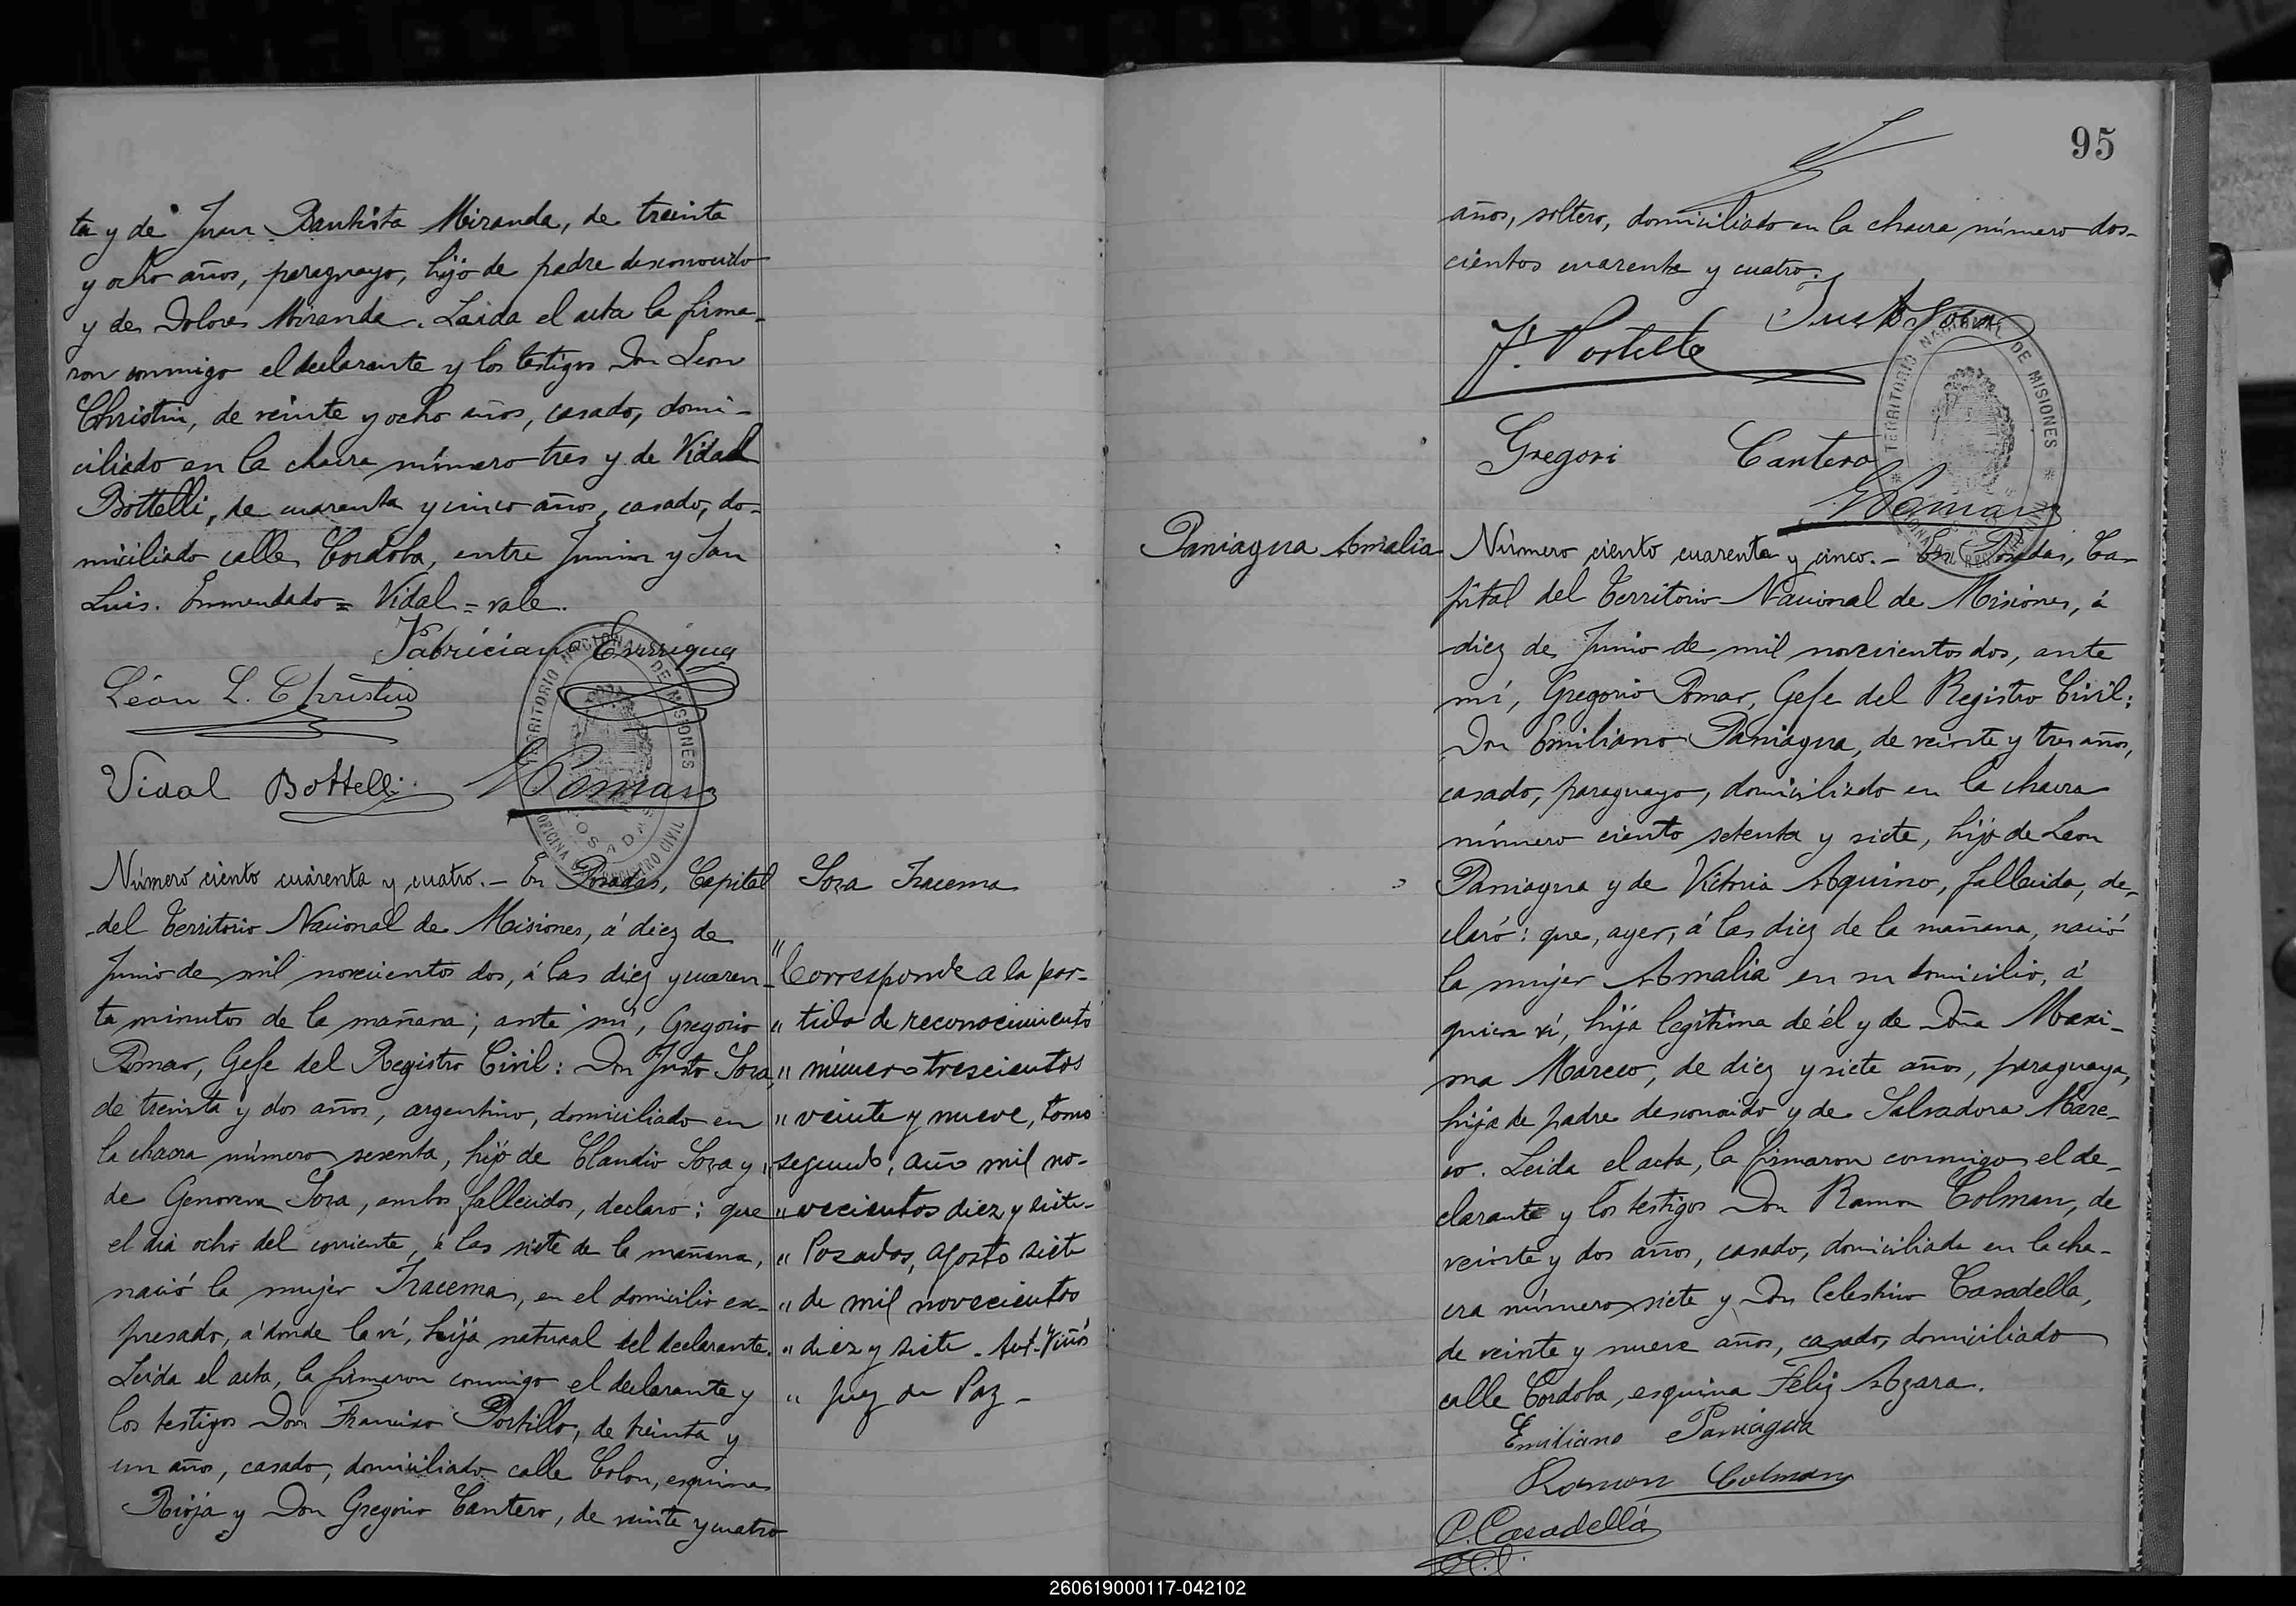 ta y de Juan Bautista Miranda, de treinta
y ocho años, paraguayo, hijo de padre desconocido
y de Dolores Miranda. Laida el acta la firma-
ron conmigo el declarante y los testigos Don Leon
Christin, de veinte y ocho años, casado, domi-
ciliado en la chacra número tres y de Vidal
Bottelli, de cuarenta y cinco años, casado, do-
miciliado calle Cordoba, entre Junin y San
Luis. Enmendado = Vidal = vale.
Patriciano
Léon L. Christin
Vidal Bottelli
GPomar
TERRITORIO NACIONAL DE MISIONES
OFICINA REGISTRO CIVIL
POSADAS
Número ciento cuarenta y cuatro.- En Posadas, Capital
del Territorio Nacional de Misiones, á diez de
Junio de mil novecientos dos, á las diez y cuaren-
ta minutos de la mañana; ante mí, Gregorio
Pomar, Gefe del Registro Civil: Don Justo Soza,
de treinta y dos años, argentino, domiciliado en
la chacra número sesenta, hijo de Claudio Soza y
de Genoveva Soza, ambos fallecidos, declaro: que
el dia ocho del corriente, á las siete de la mañana,
nació la mujer Iracema, en el domicilio ex-
presado, á donde la ví, hija natural del declarante.
Leida el acta, la firmaron conmigo el declarante y
los testigos Don Francisco Portillo, de treinta y
un años, casado, domiciliado calle Colon, esquina
Rioja y Don Gregorio Cantero, de veinte y cuatro
Soza Iracema
"Corresponde a la par-
" tida de reconocimiento
" número trescientos
" veinte y nueve, tomo
" segundo, año mil no-
" vecientos diez y siete-
" Posadas, Agosto siete
" de mil novecientos
" diez y siete - Ant. Viñ
" Juez de Paz -
95
años, soltero, domiciliado en la chacra número dos-
cientos cuarenta y cuatro.
Justo Soza
F. Portillo
Gregori Cantero
GPomar
TERRITORIO NACIONAL DE MISIONES
Paniagua Amalia
Número ciento cuarenta y cinco.- En Posadas, Ca-
pital del Territorio Nacional de Misiones, á
diez de Junio de mil novecientos dos, ante
mí, Gregorio Pomar, Gefe del Registro Civil:
Don Emiliano Paniagua, de veinte y tres años,
casado, paraguayo, domiciliado en la chacra
número ciento setenta y siete, hijo de Leon
Paniagua y de Vitoria Aquino, fallecida, de-
claró: que, ayer, á las diez de la mañana, nació
la mujer Amalia en su domicilio, á
quien ví, hija legítima de él y de Doña Maxi-
ma Mareco, de diez y siete años, paraguaya,
hija de padre desconocido y de Salvadora Mare-
co. Leida el acta, la firmaron conmigo el de-
clarante y los testigos Don Ramon Colman, de
veinte y dos años, casado, domiciliado en la cha-
cra número siete y Don Celestino Casadella,
de veinte y nueve años, casado, domiciliado
calle Cordoba, esquina Feliz Azara.
Emiliano Paniagua
Ramon Colman
C. Casadellá
260619000117-042102